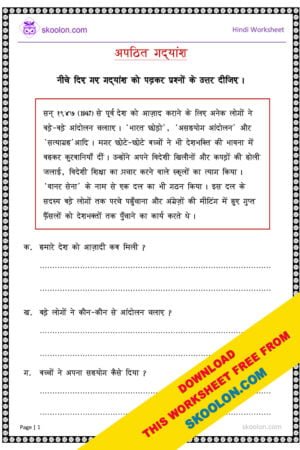 skoolon.com
Hindi Worksheet
अपठित गद्यांश
नीचे दिए गए गद्यांश को पढ़कर प्रश्नों के उत्तर दीजिए।
सन् १९४७ (1947) से पूर्व देश को आज़ाद कराने के लिए अनेक लोगों ने
बड़े-बड़े आंदोलन चलाए। 'भारत छोड़ो', 'असहयोग आंदोलन' और
'सत्याग्रह'आदि। मगर छोटे-छोटे बच्चों ने भी देशभक्ति की भावना में
बहकर कुरबानियाँ दीं। उन्होंने अपने विदेशी खिलौनों और कपड़ों की होली
जलाई, विदेशी शिक्षा का प्रचार करने वाले स्कूलों का त्याग किया।
'वानर सेना' के नाम से एक दल का भी गठन किया। इस दल के
सदस्य बड़े लोगों तक परचे पहुँचाना और अंग्रेज़ों की मीटिंग में हुए गुप्त
फ़ैसलों को देशभक्तों तक पहुँचाने का कार्य करते थे।
क. हमारे देश को आज़ादी कब मिली ?
ख. बड़े लोगों ने कौन-कौन से आंदोलन चलाए ?
ग. बच्चों ने अपना सहयोग कैसे दिया ?
DOWNLOAD
THIS WORKSHEET FREE FROM
SKOOLON.COM
Page | 1
skoolon.com